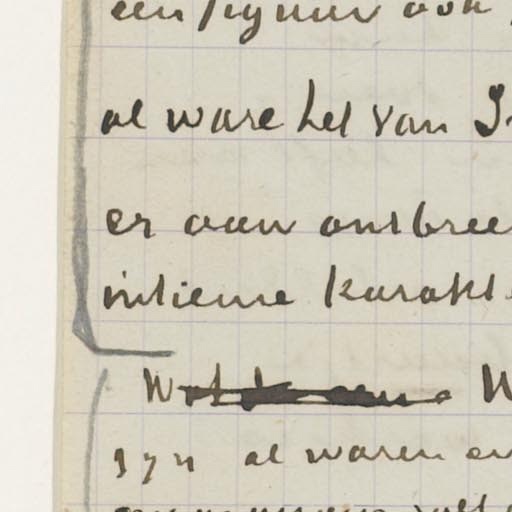 een figuur ook
al ware het van
er aan ontbree
intieme karakt
W
zyn al waren en